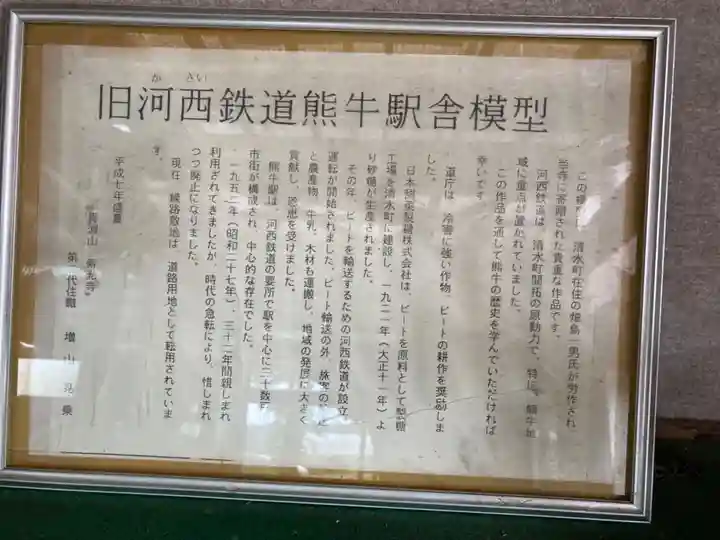 かさい
旧河西鉄道熊牛駅舎模型
この模型は、清水町在住の 島一男氏が労作され、
当寺に寄贈された貴重な作品です。
河西鉄道は、清水町開拓の原動力で、特に、熊牛地
域に重点が置かれていました。
この作品を通して熊牛の歴史を学んでいただければ
幸いです。
道庁は、冷害に強い作物、ビートの耕作を奨励しま
した。
日本甜菜製糖株式会社は、ビートを原料として製糖
工場を清水町に建設し、一九二一年(大正十一年)よ
り砂糖が生産されました。
その年、ビートを輸送するための河西鉄道が設立
運転が開始されました。ビート輸送の外、旅客の
と農産物、牛乳、木材も運搬し、地域の発展に大きく
貢献し、恩恵を受けました。
熊牛駅は、河西鉄道の要所で駅を中心に三十数戸
市街が構成され、中心的な存在でした。
一九五一年(昭和二十七年)、三十二年間親しまれ
利用されてきましたが、時代の急転により、惜しまれ
つつ廃止になりました。
現在、線路敷地は、道路用地として転用されていま
す。
平成七年盛夏
山 寺
第 代住職 増山